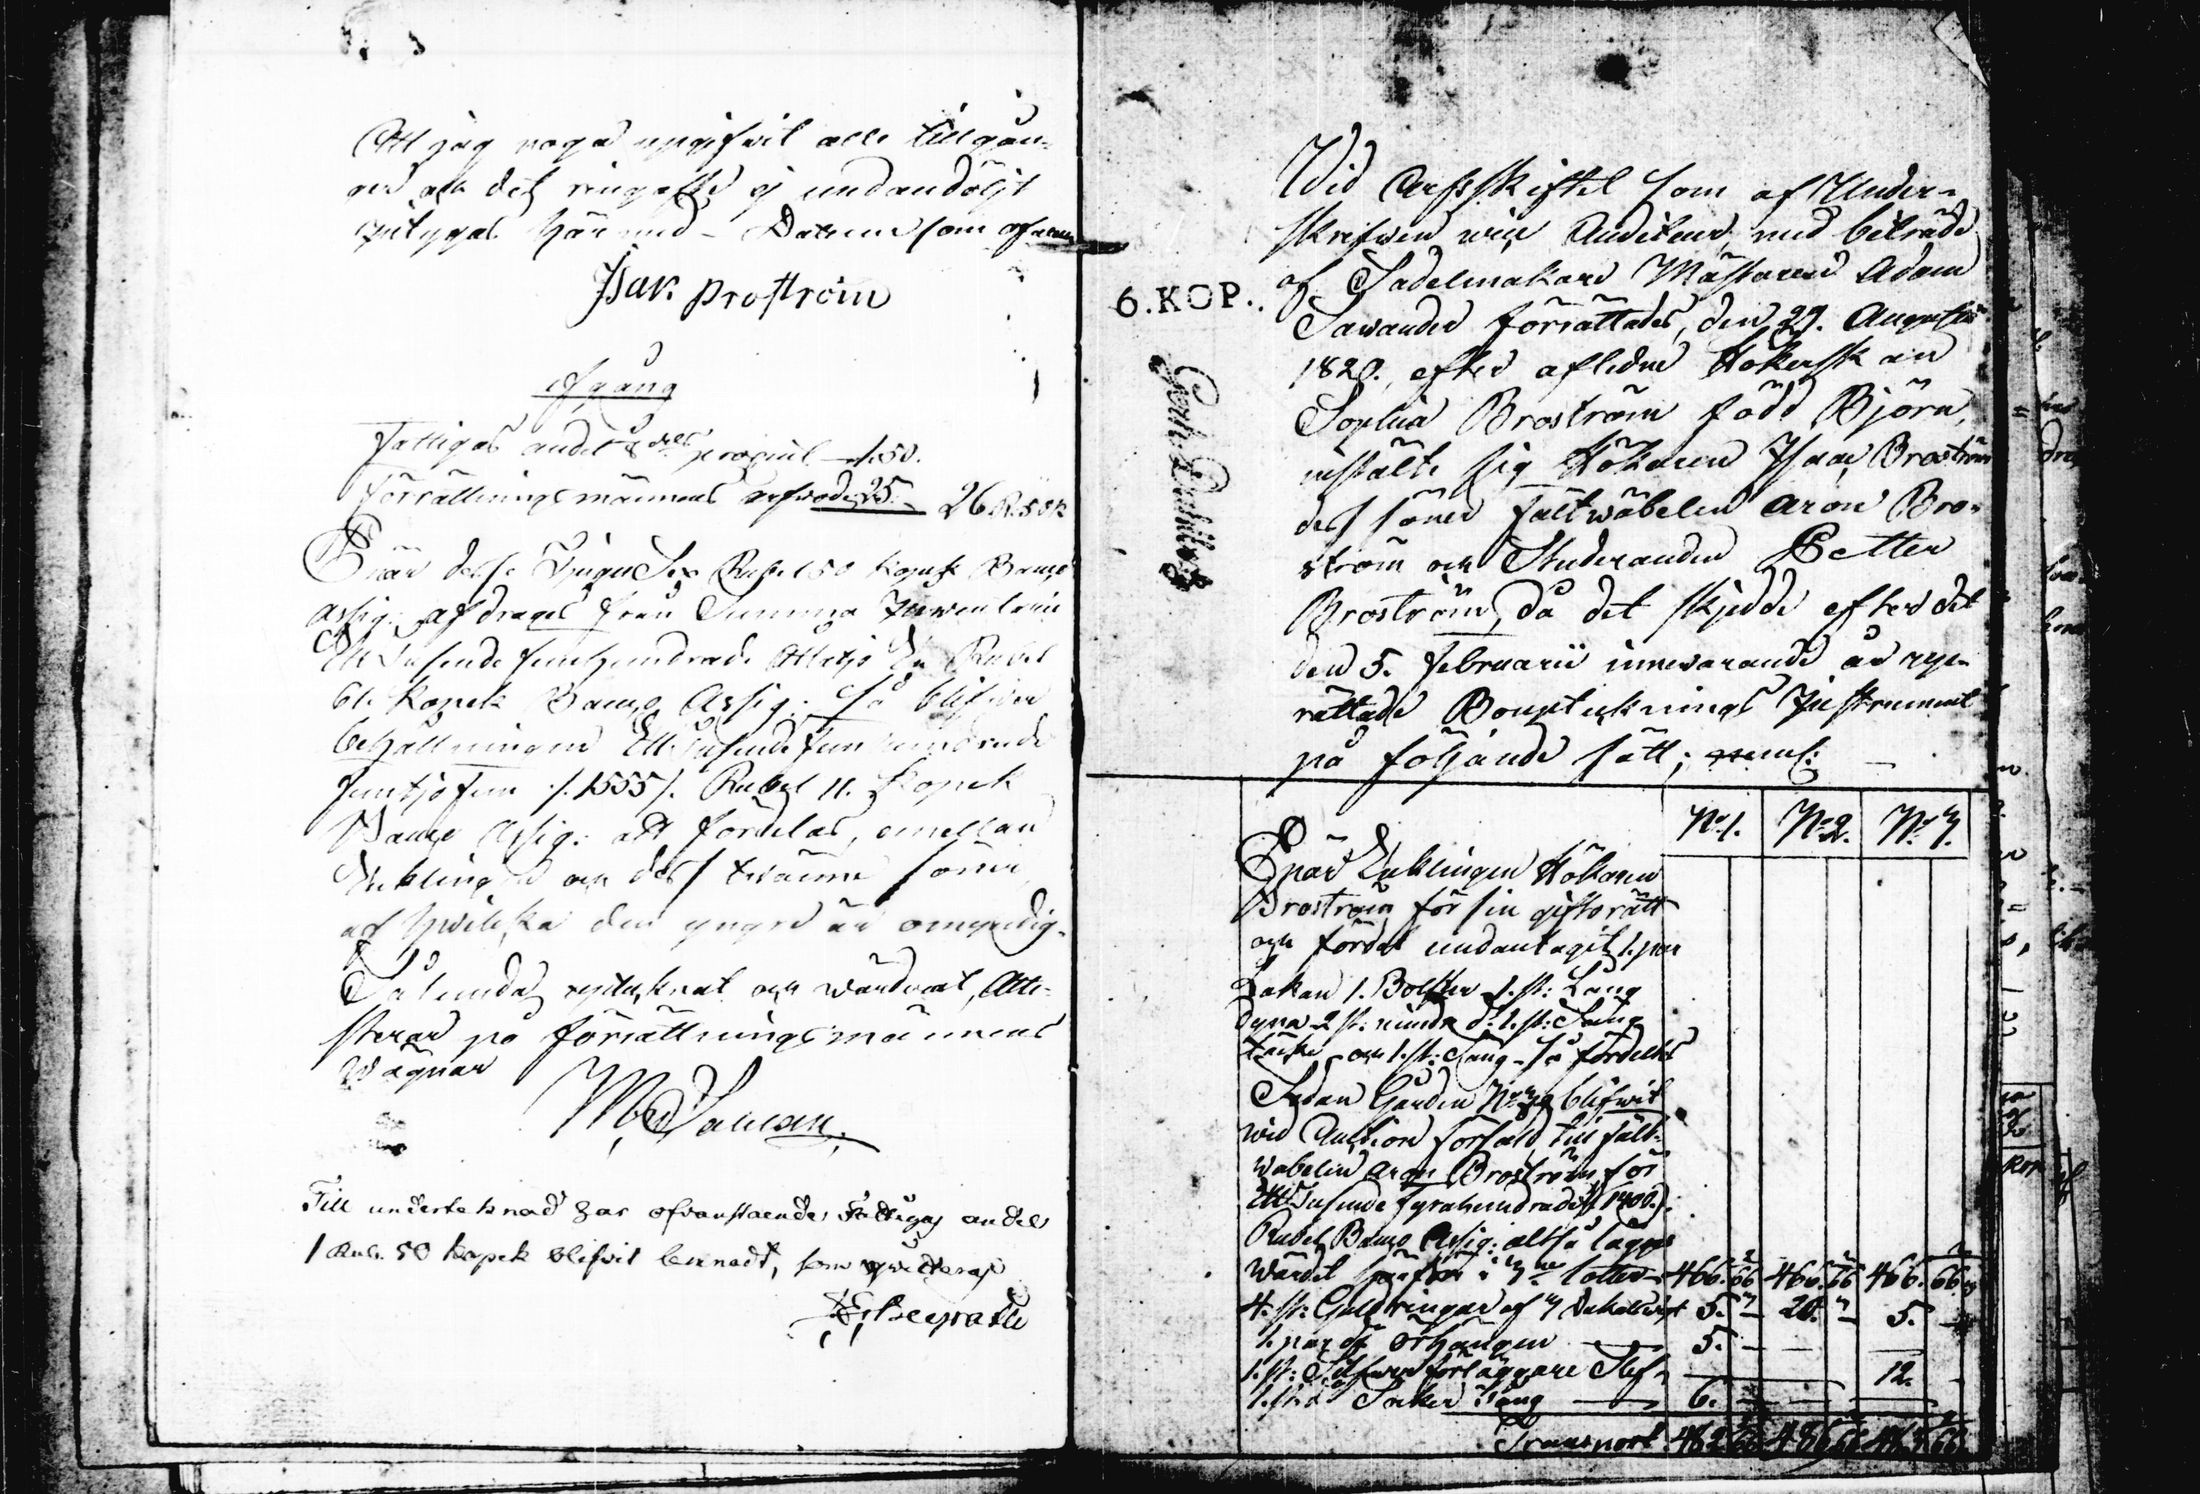 Att jag noga uppgifvit alla tillgån-
ar och det ringaste ej undandöljt
intygas härmed – Datum som ofvan
Isac Broström
Afgång
Fattigas andel procent – 1.50.
Förrättningsmännens arfvode 25. – 26 R. 50 k
När desse Tjugu Sex Rubel 50 kopek Banco
Assig: afdrages från Summa Inventarii
Ett Tusende femhundrade Åttatjo En Rubel
61. Kopek Banco Assig: så blifver
behållningen Ett tusende fem hundrade
femtjofem /.1555/. Rubel 11. Kopek
Banco Assig: att fördelas, emellan
Enklingen och dess tvänne söner,
af hvilka den yngre är omyndig.
Sålunda uptecknat och värderat, Atte-
sterar på förrättningsmännens
Wägnar
Till undertecknad har ofvanstaende Fattigas andel
1 Rub. 50 kopek blifvit lemnadt, som qvitteras
6. KOP.
Vid Arfsskiftet som af Under-
skrifven vice Auditeur, med biträde
af Sadelmakare Mästaren Adam
Sawander förrättades, den 29. Augusti
1820., efter aflidne Hökerskan
Sophia Broström född Björn,
instälte sig Hökaren Isaac Broström
dess söner fältwäbelen Aron Bro-
ström och Studeranden Petter
Broström, då det skjedde efter det
den 5. Februarii innevarande år upp-
rättade Bouptecknings Instrument
på följande sätt; neml:
No 1. No 2. No 3.
När Enklingen Hökaren
Broström för sin giftorätt
och fördel undantagit 1. par
Lakan 1. Bolster 1. st: Lång
dyna 2 st: mindre d:o 1. st: Säng
täcke och 1. st: Säng – så fördeltes
Sedan Gården No blifvit
vid Auction försåld till fält-
wäbelen Aron Broström för
Ett Tusende fyrahundrade /.1400./.
Rubel Banco Assig: altså lägges
Wärdet härför i 3ne lotter – 466. 66 466. 66 466. 66
4. st: Guldringar af 5. – 20. – 5. –
1. par d:o örhängen – 5. –
1. st: Silfver förläggare Slef – 12. –
1. st. d:o Socker Tång – 6. –
Transport 482 66 486 66 483 66